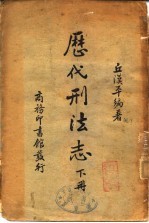 丘漢平編著
歷代刑法志 下冊
商務印書館發行